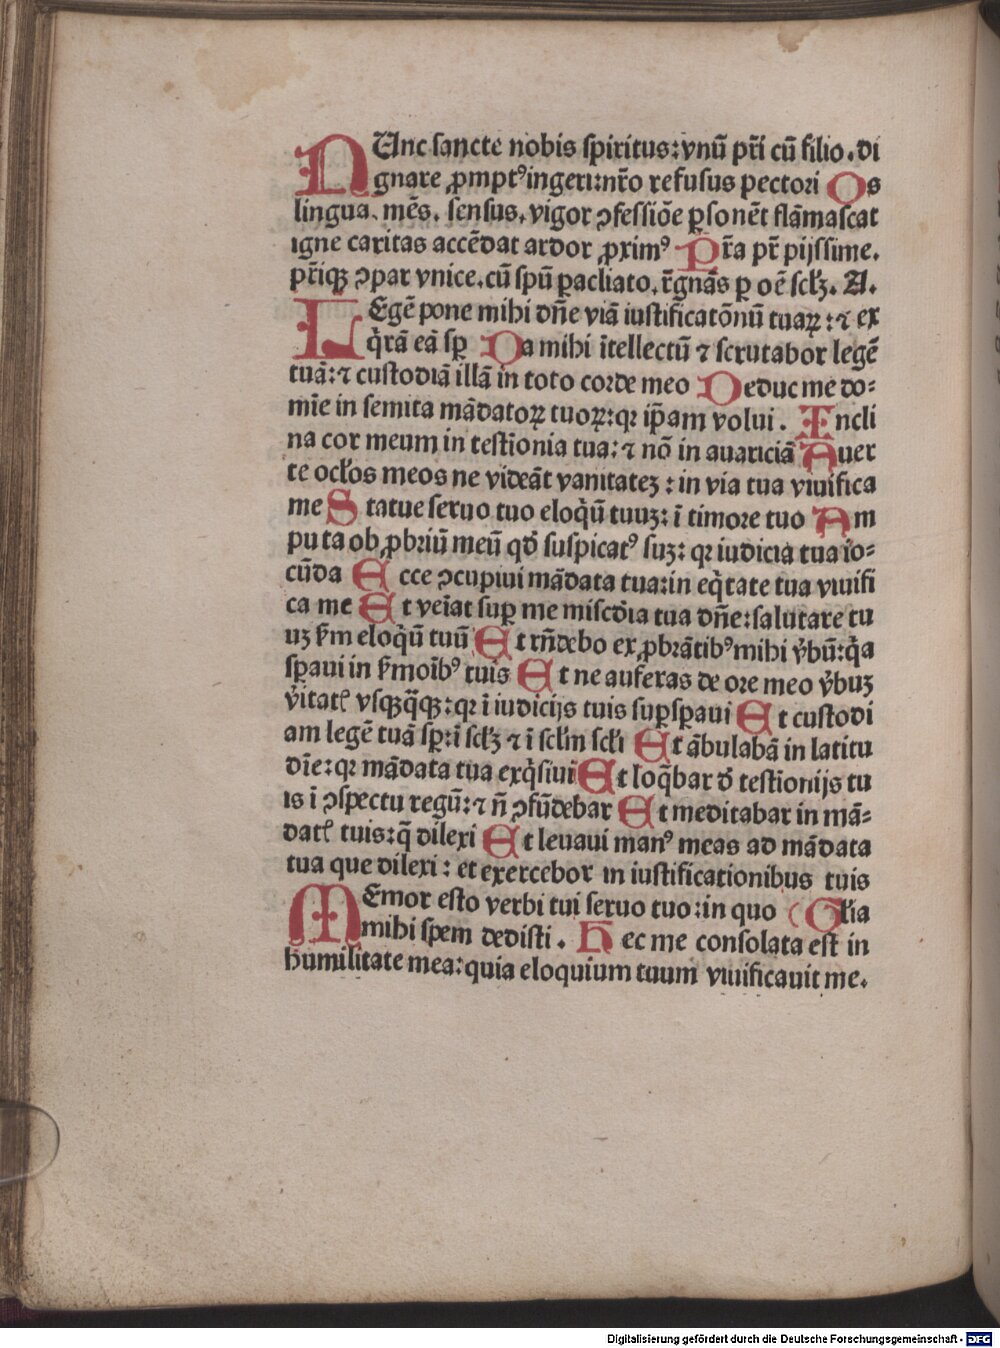 NUnc sancte nobis spiritus: vnū pr̄i cū filio. di
gnare ꝓmptꝰ ingeri: nr̄o refusus pectori Os
lingua. mēs. sensus. vigor ↄfessiōe ꝑsonēt flāmascat
igne caritas accēdat ardor ꝓximꝰ Pr̄a pr̄ pijssime.
pr̄iqꝫ ↄpar vnice. cū spū ꝑacliato. r̄gnās ꝑ oē scl̄ꝫ. A.
LEgē pone mihi dn̄e viā iustificatōnū tuaꝝ: ⁊ ex
q̇rā eā sꝑ Da mihi ītellectū ⁊ scrutabor legē
tuā: ⁊ custodiā illā in toto corde meo Deduc me do⸗
mīe in semita mādatoꝝ tuoꝝ: qꝛ ip̄am volui. Incli
na cor meum in testīonia tua: ⁊ nō in auariciā Auer
te ocl̄os meos ne videāt vanitateꝫ: in via tua viuifica
me Statue seruo tuo eloq̇ū tuuꝫ: ī timore tuo Am
puta obꝓbriū meū qd̄ suspicatꝰ suꝫ: qꝛ iudicia tua io⸗
cūda Ecce ↄcupiui mādata tua: in eq̇tate tua viuifi
ca me Et veīat suꝑ me miscd̄ia tua dn̄e: salutare tu
uꝫ ẜm eloq̇ū tuū Et rn̄debo exꝓbrātibꝰ mihi v̄bū: q̇a
sꝑaui in ẜmoībꝰ tuis Et ne auferas de ore meo v̄buꝫ
v̄itatꝭ vsqꝫq̄qꝫ: qꝛ ī iudicijs tuis suꝑsꝑaui Et custodi
am legē tuā sꝑ: ī scl̄ꝫ ⁊ ī scl̄m scl̄i Et ābulabā in latitu
dīe: qꝛ mādata tua exq̇siui Et loq̄bar d̄ testīonijs tu
is ī ↄspectu regū: ⁊ n̄ ↄfūdebar Et meditabar in mā⸗
datꝭ tuis: q̄ dilexi Et leuaui manꝰ meas ad mādata
tua que dilexi: et exercebor in iustificationibus tuis
MEmor esto verbi tui seruo tuo: in quo (Gl̄ia
mihi spem dedisti. Hec me consolata est in
humilitate mea: quia eloquium tuum viuificauit me.
Digitalisierung gefördert durch die Deutsche Forschungsgemeinschaft - DFG